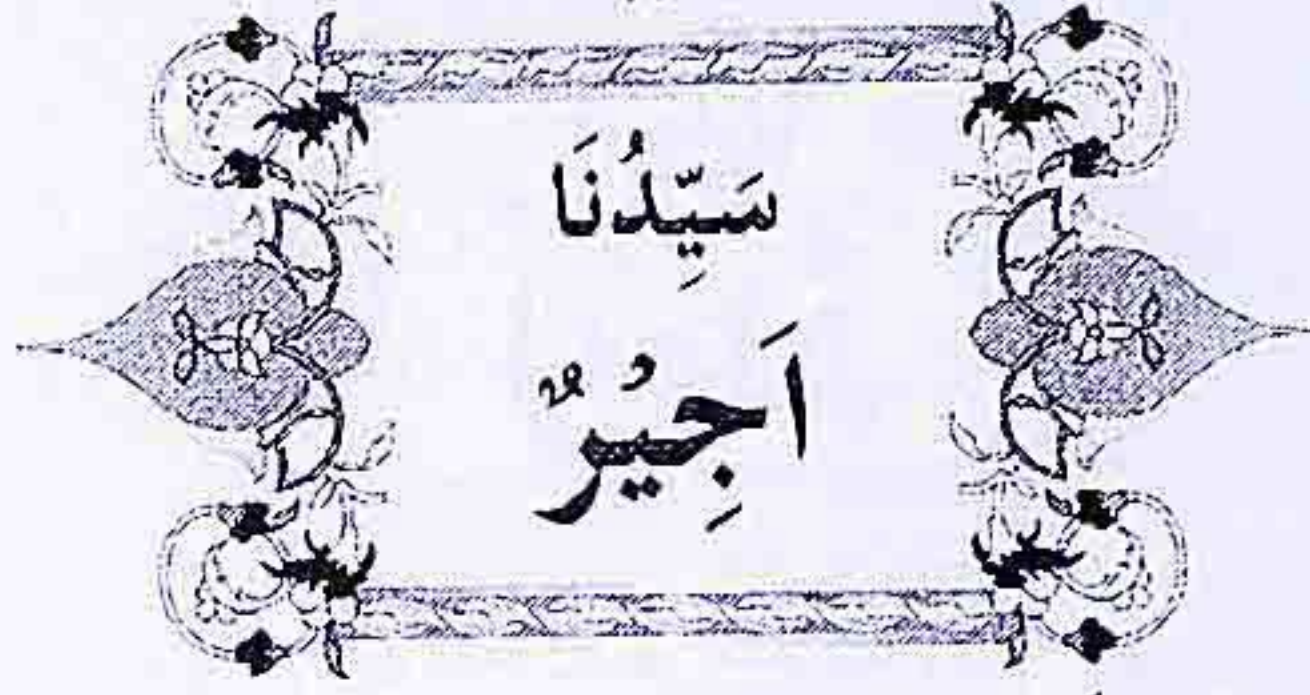 سَيِّدُنَا
اَجِيْرٌ